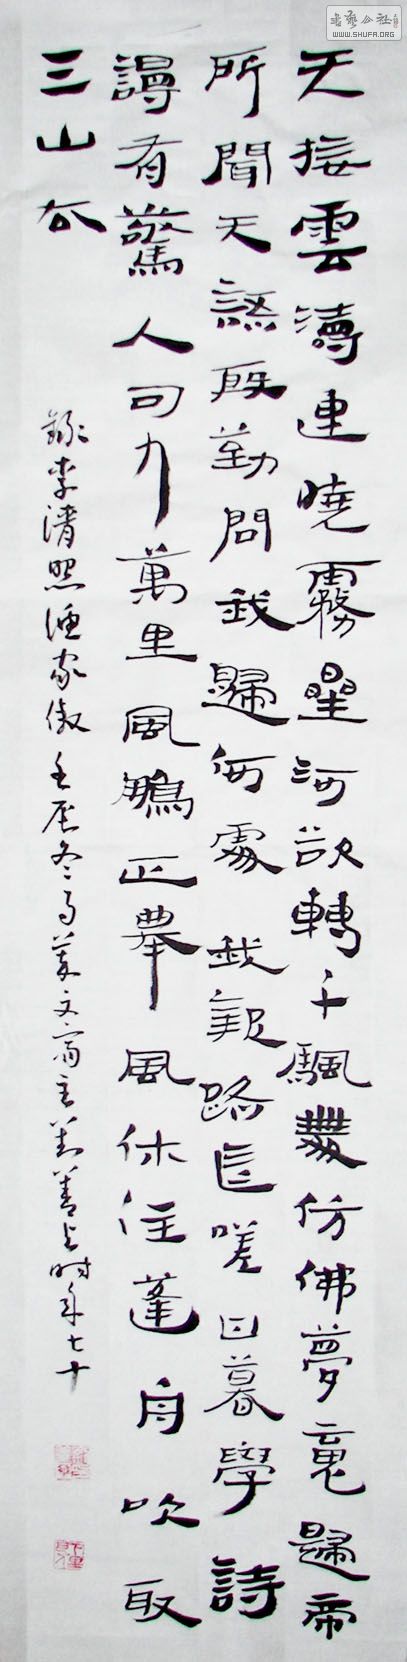 書藝公社
WWW.SHUFA.ORG
天接雲濤連曉霧星河欲轉千颿舞仿佛夢魂歸帝
所聞天語殷勤問我歸何處我報路長嗟日暮學詩
謾有驚人句九萬里風鵬正舉風休住蓬舟吹取
三山去
錄李清照漁家傲壬辰冬月文齋主善時年七十